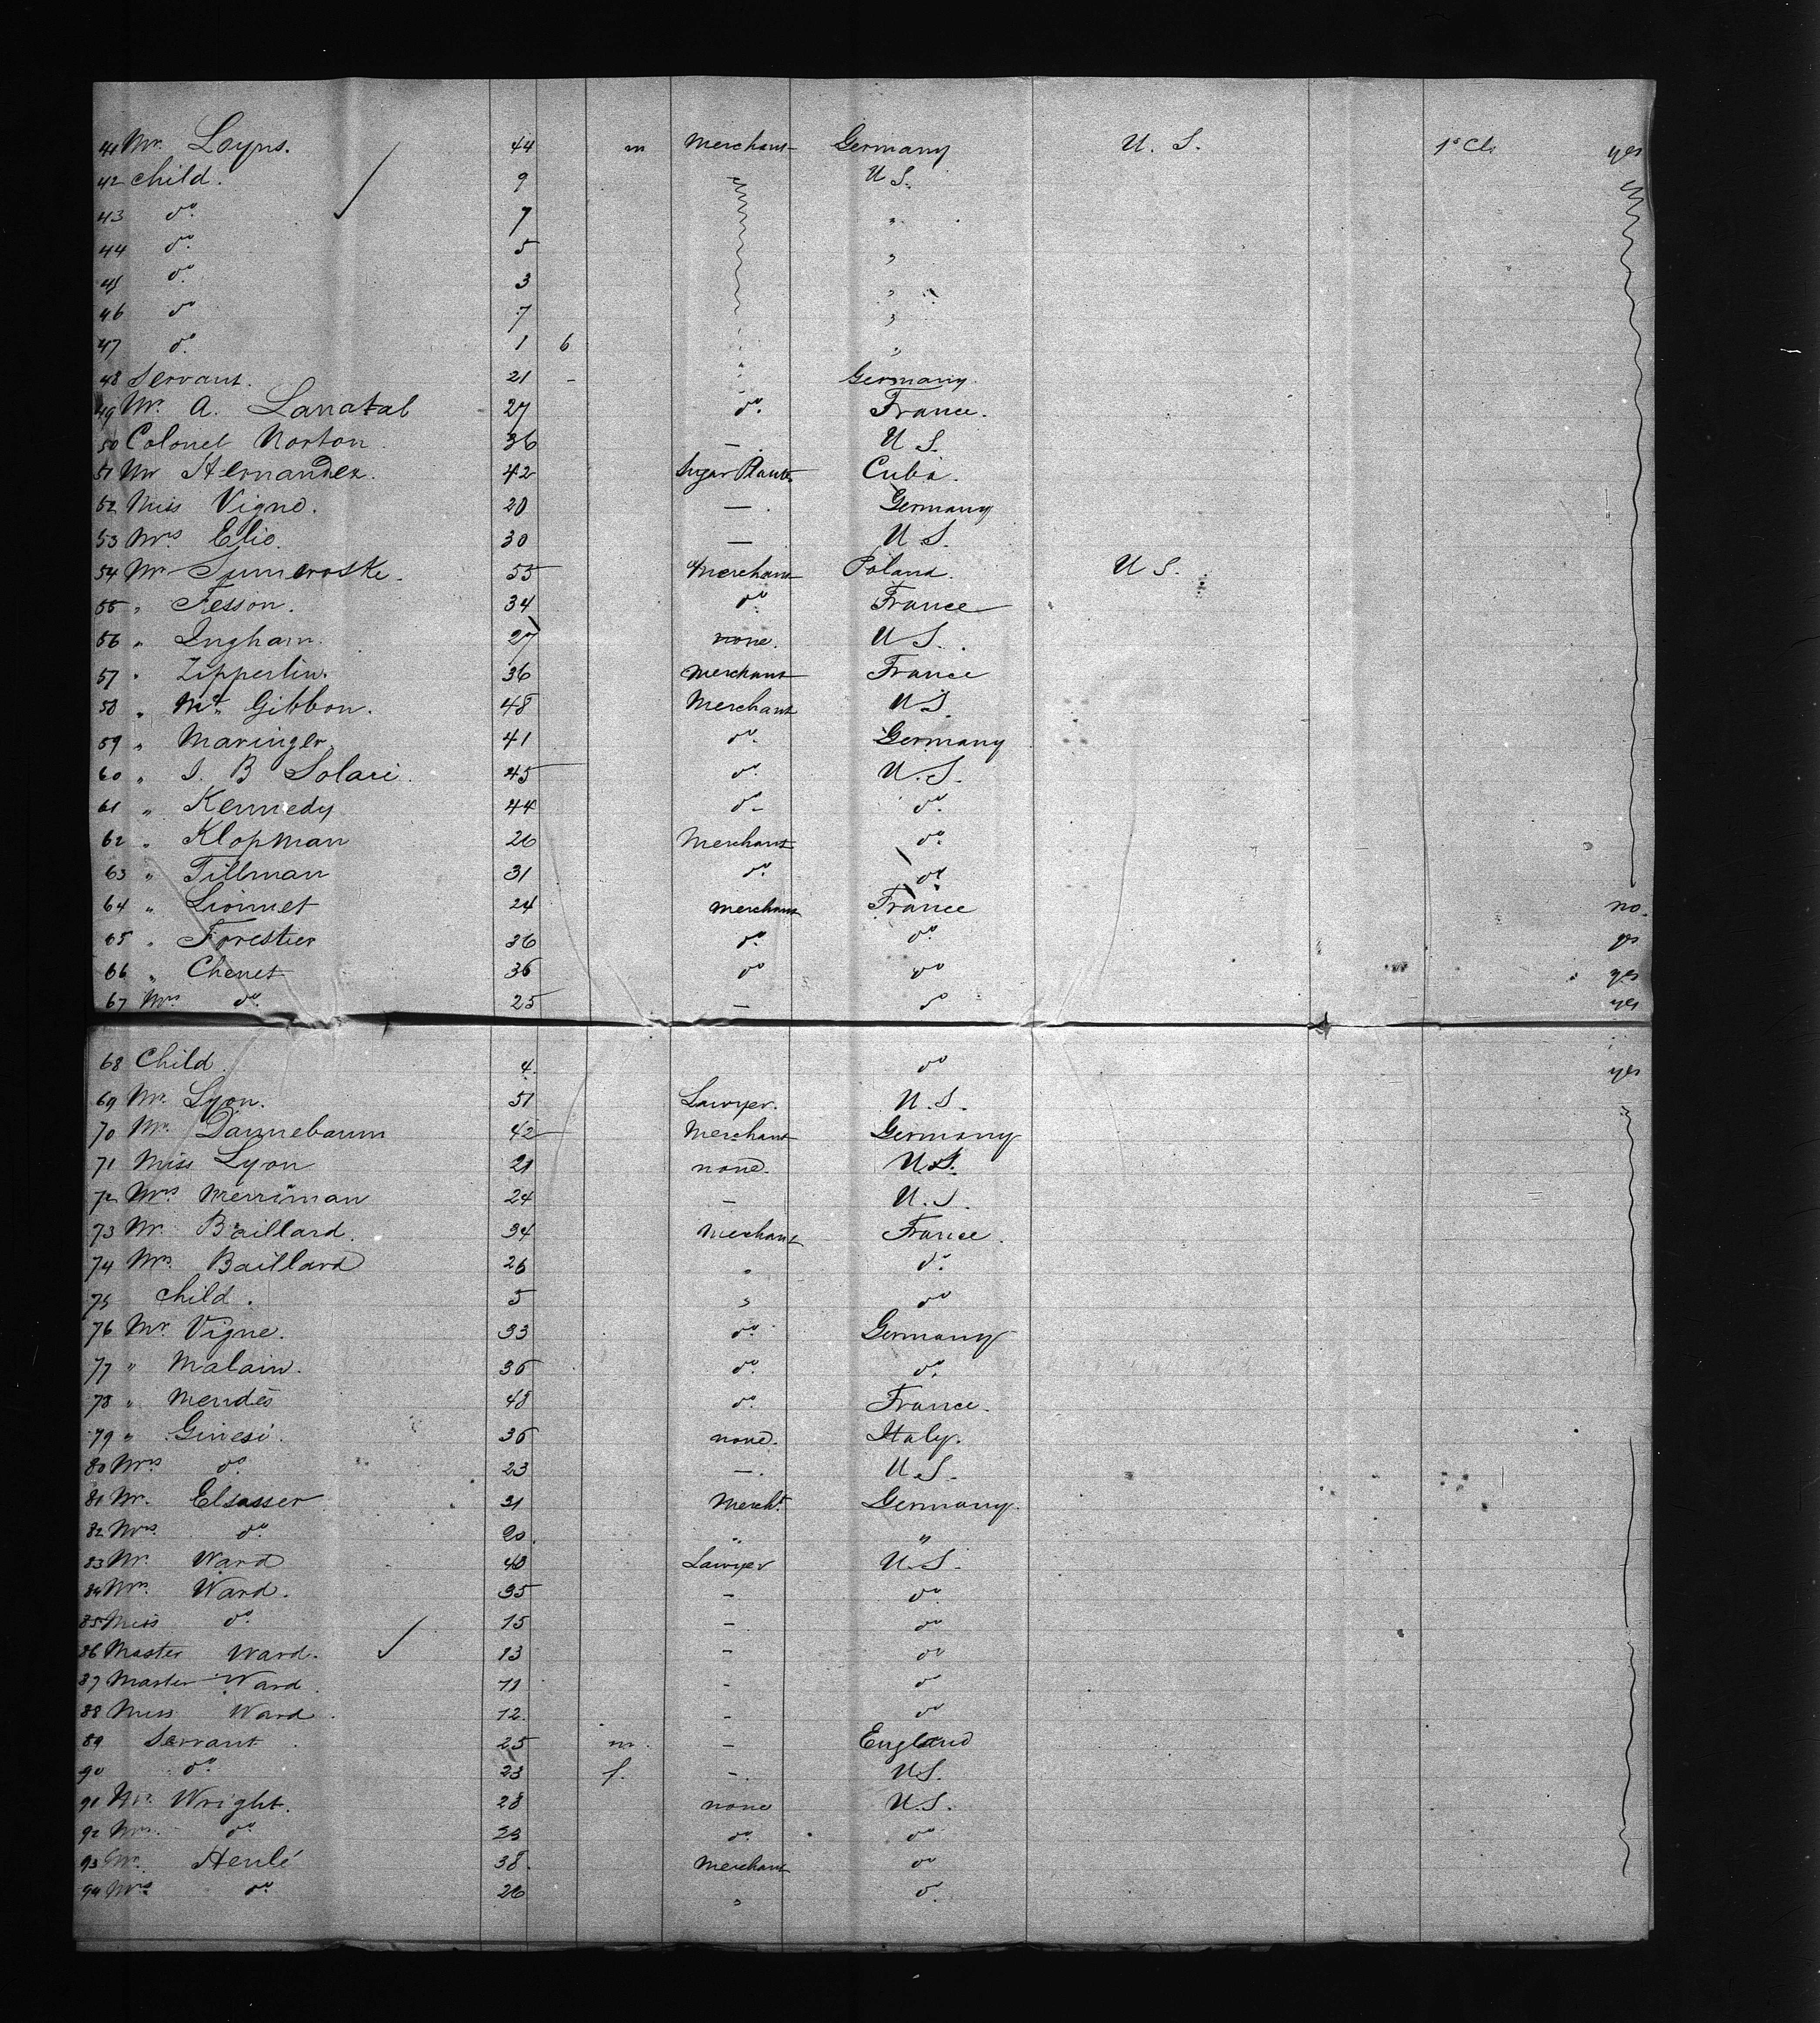 41 Mr. Loyns. 44 m Merchant Germany U. S. 1st Cl. yes
42 Child. 9 U S.
43 do. 7 "
44 do. 5 "
45 do. 3 "
46 do 7 "
47 do. 1 6 "
48 Servant. 21 - Germany.
49 Mr. A. Lanatab 27 do. France.
50 Colonel Norton. 36 — U S.
51 Mr Hernandez. 42 Sugar Planter Cuba.
52 Miss Vigne. 20 — Germany
53 Mrs Elie. 30 — U S.
54 Mr 55 Merchant Poland. U S.
55 " Fesson. 34 do. France
56 " Ingham. 27 none. U S.
57 " Zipperlin. 36 Merchant France
58 " Mc. Gibbon. 48 Merchant U S
59 " Maringer. 41 do. Germany
60 " J. B Solari. 45 do. U. S.
61 " Kennedy 44 do - do.
62 " Klopman 26 Merchant do.
63 " Tillman 31 do. do
64 " Lionnet 24 merchant France no.
65 " Forestier 36 do. do. yes
66 " Chenet 36 do do yes
67 Mrs do. 25 — do yes
68 Child. 4. do yes
69 Mr. Lyon. 51 Lawyer. U. S.
70 Mr. Dannebaum 42 Merchant Germany
71 Miss Lyon 21 none. U.S.
72 Mrs Merriman 24 — U. S
73 Mr. Baillard. 34 Merchant France.
74 Mrs. Baillard 26 " do.
75 Child. 5 " do
76 Mr. Vigne. 33 do. Germany
77 " Malain. 36 do. do.
78 " Mendès 48 do. France.
79 " Ginesi. 36 none. Italy.
80 Mrs do. 23 —. U. S.
81 Mr. Elsasser 31 Mercht Germany.
82 Mrs. do. 20. " "
83 Mr. Ward 40 Lawyer U. S.
84 Mrs. Ward. 35 - do.
85 Miss do. 15 - do
86 Master Ward. 13 - do
87 Master Ward. 11 - do
88 Miss Ward. 12. - do
89 Servant. 25 m. - England
90 do. 23 f. -. U.S.
91 Mr. Wright. 28 none U.S.
92 Mrs. do. 23 do. do
93 Mr. Henlé 38. Merchant do
94 Mrs do. 26 " do.